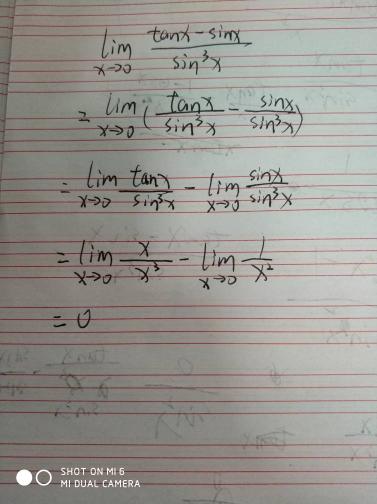 lim x→0 (tanx - sinx)/(sin³x)
= lim x→0 (tanx/sin³x - sinx/sin³x)
= lim x→0 tanx/sin³x - lim x→0 sinx/sin³x
= lim x→0 x/x³ - lim x→0 1/x²
= 0
SHOT ON MI 6
MI DUAL CAMERA